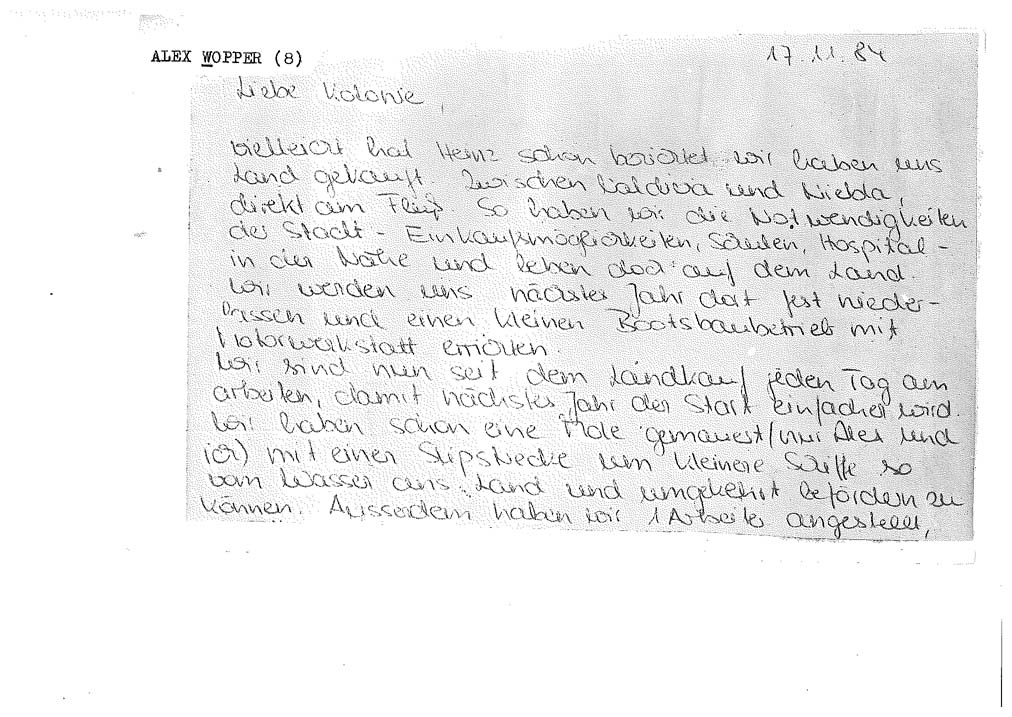 ALEX WOPPER (8)
17.11.84
Liebe Kolonie,
vielleicht hat Heinz schon berichtet. wir haben uns
Land gekauft. Zwischen Valdivia und Niebla,
direkt am Fluß. So haben wir die Notwendigkeiten
der Stadt - Einkaufsmöglichkeiten, Schulen, Hospital -
in der Nähe und leben doch auf dem Land.
Wir werden uns nächstes Jahr dort fest nieder-
lassen und einen kleinen Bootsbaubetrieb mit
Motorwerkstatt errichten.
Wir sind nun seit dem Landkauf jeden Tag am
arbeiten, damit nächstes Jahr der Start einfacher wird.
Wir haben schon eine Mole gemauert (nur Alex und
ich) mit einer Slipstrecke um kleinere Schiffe so
vom Wasser ans Land und umgekehrt befördern zu
können. Ausserdem haben wir 1 Arbeiter angestellt,